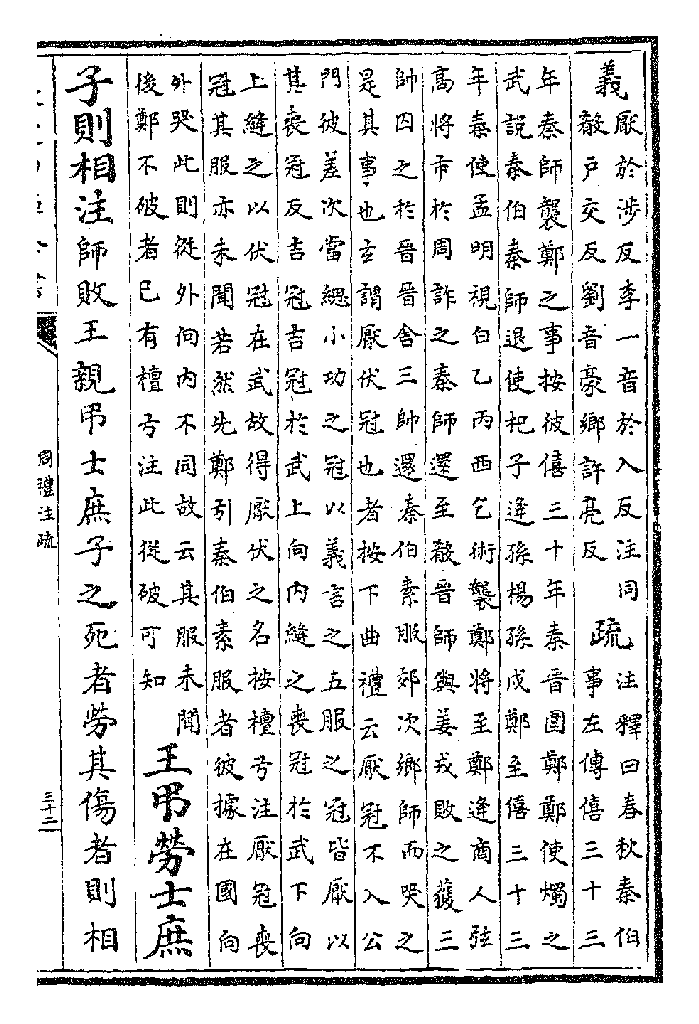 義
厭於涉反李一音於入反注同
殽戶交反劉音豪鄉許亮反
疏
注釋曰春秋秦伯
事左傳僖三十三
年秦師襲鄭之事按彼僖三十年秦晉圍鄭鄭使燭之
武說秦伯秦師退使杞子逢孫楊孫戍鄭至僖三十三
年秦使孟明視白乙丙西乞術襲鄭將至鄭逢商人弦
高將市於周詐之秦師還至殽晉師與姜戎敗之獲三
帥囚之於晉晉舍三帥還秦伯素服郊次鄉師而哭之
是其事也玄謂厭伏冠也者按下曲禮云厭冠不入公
門彼差次當緦小功之冠以義言之五服之冠皆厭以
其喪冠反吉冠吉冠於武上向內縫之喪冠於武下向
上縫之以伏冠在武故得厭伏之名按檀弓注厭冠喪
冠其服亦未聞若然先鄭引秦伯素服者彼據在國向
外哭此則從外向內不同故云其服未聞
後鄭不破者已有檀弓注此從破可知
王弔勞士庶
子則相注師敗王親弔士庶子之死者勞其傷者則相
周禮注疏
三十二